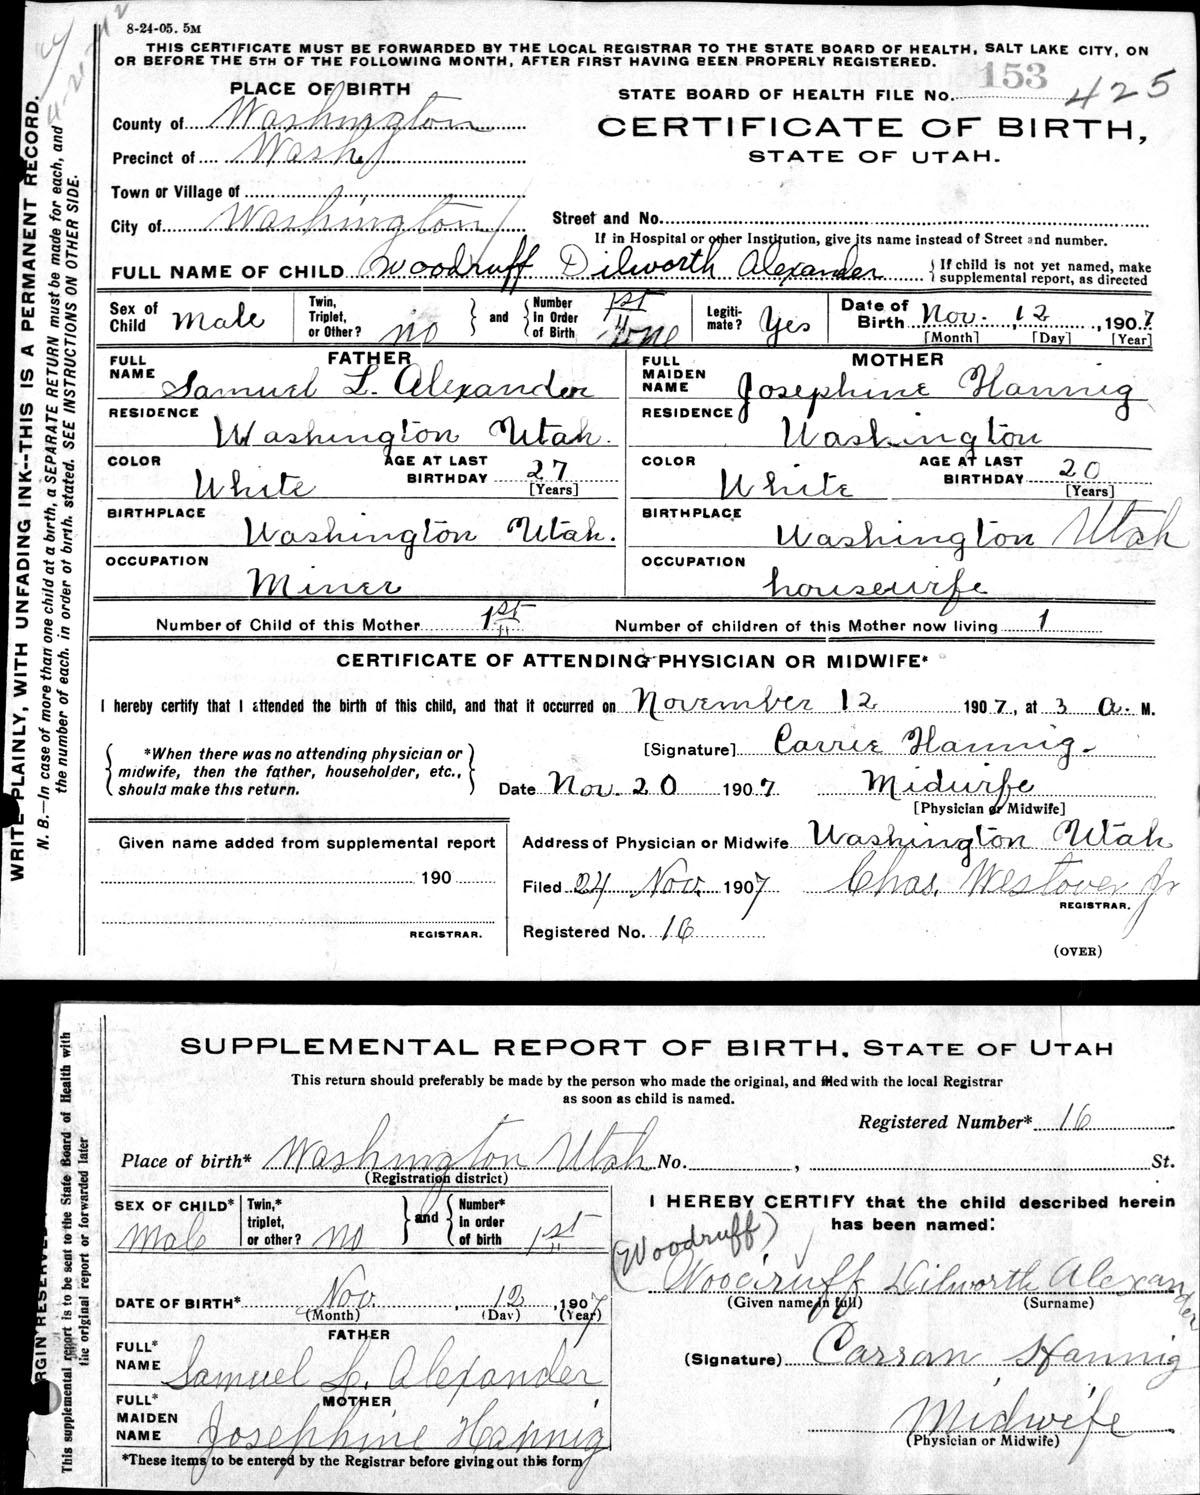 8-24-05. 5M
THIS CERTIFICATE MUST BE FORWARDED BY THE LOCAL REGISTRAR TO THE STATE BOARD OF HEALTH, SALT LAKE CITY, ON
OR BEFORE THE 5TH OF THE FOLLOWING MONTH, AFTER FIRST HAVING BEEN PROPERLY REGISTERED.
153
PLACE OF BIRTH
STATE BOARD OF HEALTH FILE No. 425
County of Washington
CERTIFICATE OF BIRTH,
Precinct of Wash
STATE OF UTAH.
Town or Village of
City of Washington
Street and No.
If in Hospital or other Institution, give its name instead of Street and number.
FULL NAME OF CHILD Woodruff Dilworth Alexander { If child is not yet named, make supplemental report, as directed
Sex of Child Male Twin, Triplet, or Other? no } and { Number In Order of Birth 1st One Legiti-mate? Yes Date of Birth Nov. 12, 1907
[Month] [Day] [Year]
FATHER
MOTHER
FULL NAME Samuel L. Alexander
FULL MAIDEN NAME Josephine Hannig
RESIDENCE Washington Utah.
RESIDENCE Washington
COLOR White AGE AT LAST BIRTHDAY 27 [Years]
COLOR White AGE AT LAST BIRTHDAY 20 [Years]
BIRTHPLACE Washington Utah.
BIRTHPLACE Washington Utah
OCCUPATION Miner
OCCUPATION housewife
Number of Child of this Mother 1st Number of children of this Mother now living 1
CERTIFICATE OF ATTENDING PHYSICIAN OR MIDWIFE*
I hereby certify that I attended the birth of this child, and that it occurred on November 12 1907, at 3 a. M.
*When there was no attending physician or
midwife, then the father, householder, etc.,
should make this return.
[Signature] Carrie Hannig.
Date Nov. 20 1907 Midwife
[Physician or Midwife]
Given name added from supplemental report
190
REGISTRAR.
Address of Physician or Midwife Washington Utah
Filed 24 Nov. 1907 Chas. Westover Jr
REGISTRAR.
Registered No. 16
(OVER)
WRITE PLAINLY, WITH UNFADING INK--THIS IS A PERMANENT RECORD.
N. B.--In case of more than one child at a birth, a SEPARATE RETURN must be made for each, and
the number of each, in order of birth, stated. SEE INSTRUCTIONS ON OTHER SIDE.
SUPPLEMENTAL REPORT OF BIRTH, STATE OF UTAH
This return should preferably be made by the person who made the original, and filed with the local Registrar
as soon as child is named.
Registered Number* 16
Place of birth* Washington Utah No. , St.
(Registration district)
SEX OF CHILD* Male Twin,* triplet, or other? no } and { Number* In order of birth 1st
I HEREBY CERTIFY that the child described herein
has been named:
(Woodruff)
Woodruff Dilworth Alexander
(Given name in full) (Surname)
DATE OF BIRTH* Nov. 12, 1907
(Month) (Day) (Year)
FATHER
FULL* NAME Samuel L. Alexander
(Signature) Carran Hannig
MOTHER
FULL* MAIDEN NAME Josephine Hannig
Midwife
(Physician or Midwife)
*These items to be entered by the Registrar before giving out this form
This supplemental report is to be sent to the State Board of Health with
the original report or forwarded later